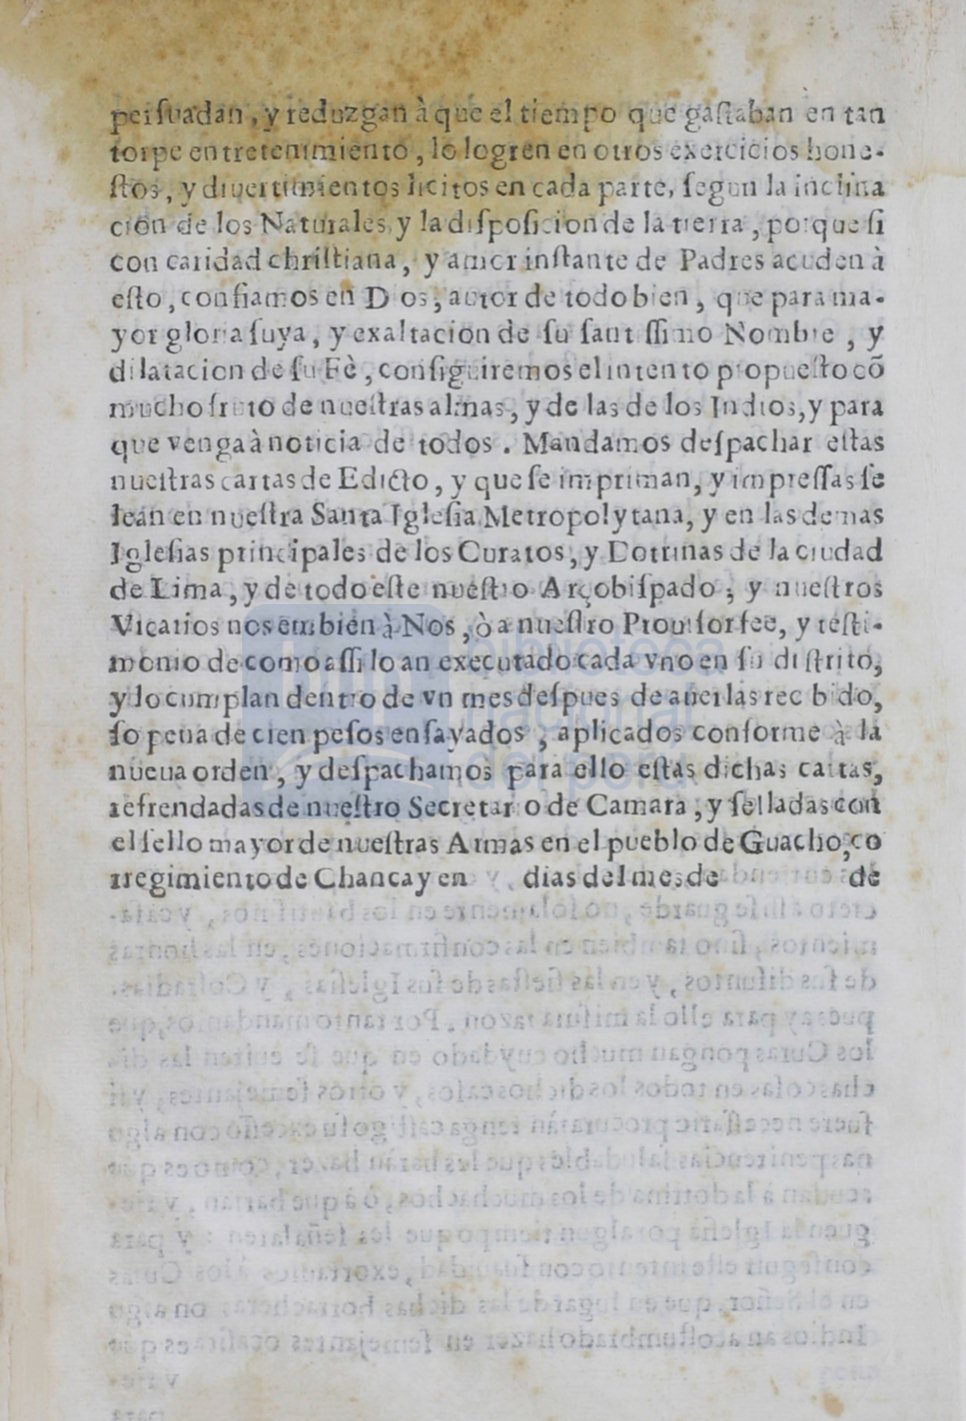 persuadan, y reduzgan à que el tiempo que gastaban en tan
torpe entretenimiento, lo logren en otros exercicios hone-
stos, y diuertimientos licitos en cada parte, segun la inclina
cion de los Naturales y la disposicion de la tierra, porque si
con caridad christiana, y amor instante de Padres acuden à
esto, confiamos en Dios, autor de todo bien, que para ma-
yor gloria suya, y exaltacion de su santissimo Nombre, y
dilatacion de su Fè, consiguiremos el intento propuesto cõ
mucho fruto de nuestras almas, y de las de los Indios, y para
que venga à noticia de todos. Mandamos despachar estas
nuestras cartas de Edicto, y que se impriman, y impressas se
lean en nuestra Santa Iglesia Metropolytana, y en las demas
Iglesias principales de los Curatos, y Dotrinas de la ciudad
de Lima, y de todo este nuestro Arçobispado; y nuestros
Vicarios nos embien à Nos, ò a nuestro Prouisor fee, y testi-
monio de como assi lo an executado cada vno en su distrito,
y lo cumplan dentro de vn mes despues de auerlas recibido,
so pena de cien pesos ensayados, aplicados conforme à la
nueua orden, y despachamos para ello estas dichas cartas,
refrendadas de nuestro Secretario de Camara, y selladas con
el sello mayor de nuestras Armas en el pueblo de Guacho, co
rregimiento de Chancay en dias del mes de de
biblioteca
nacional
del perú